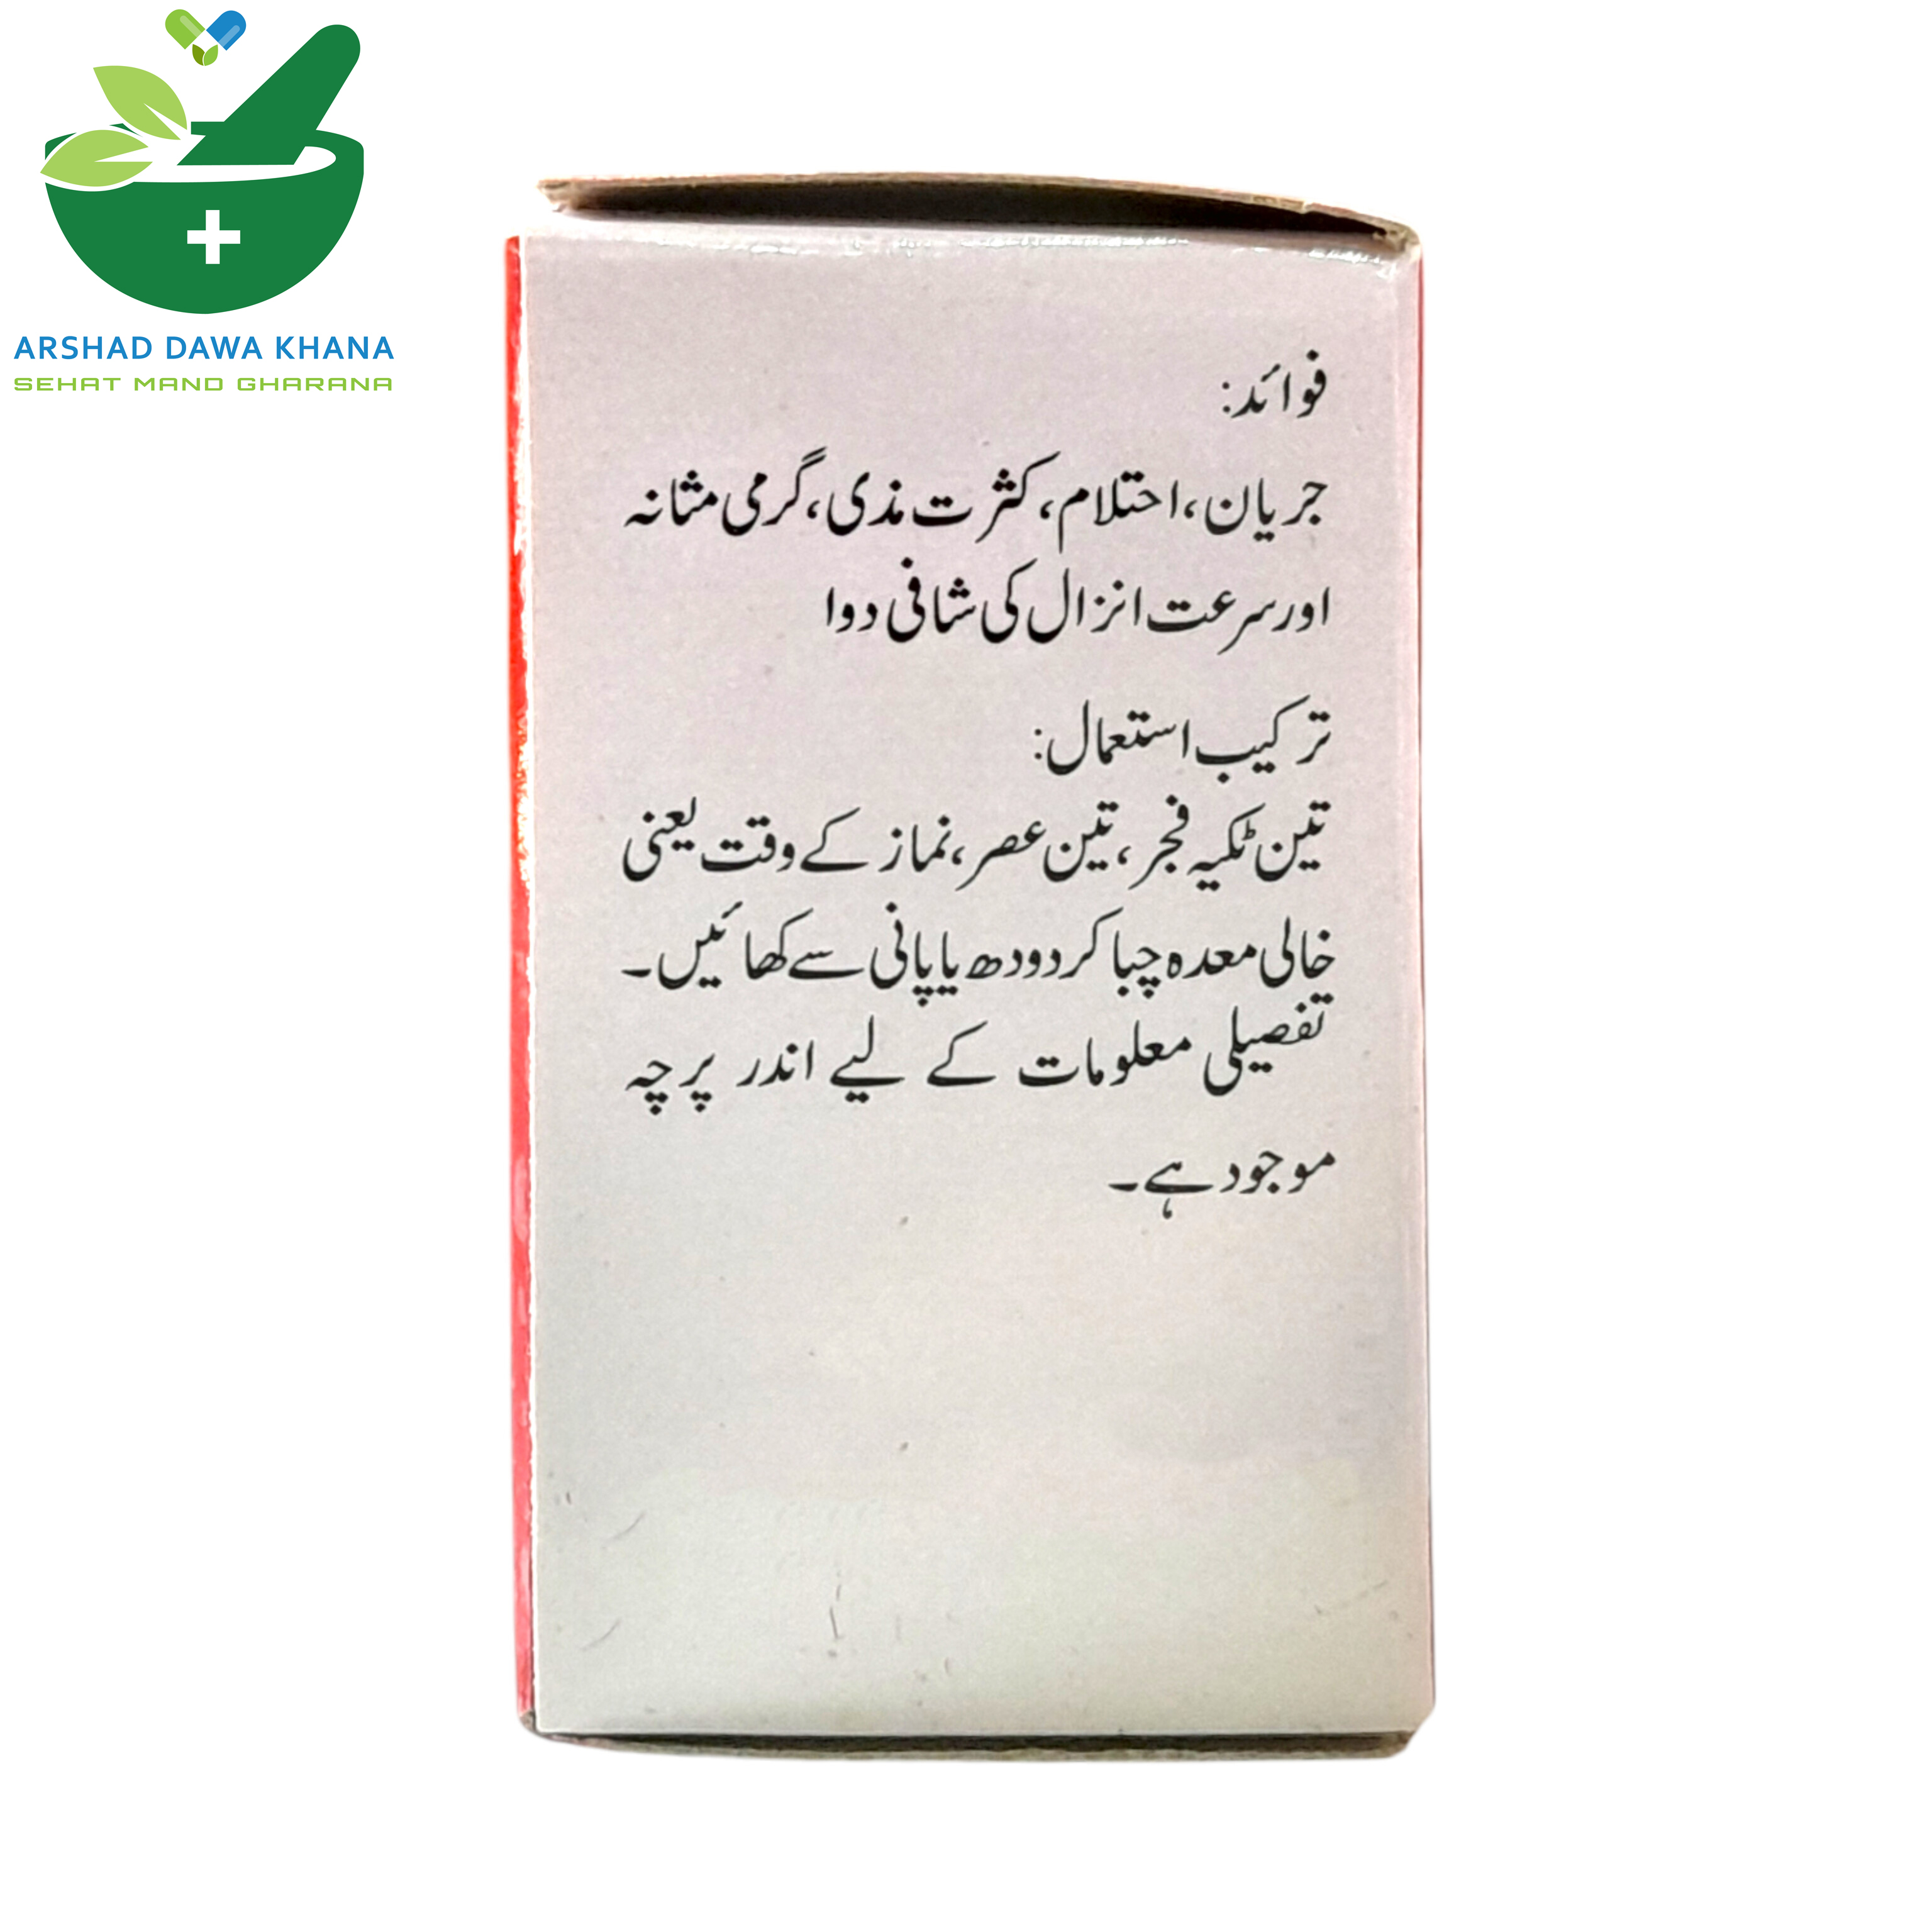 ARSHAD DAWA KHANA
SEHAT MAND GHARANA
فوائد:
جریان، احتلام، کثرت مذی، گرمی مثانہ
اور سرعت انزال کی شافی دوا
ترکیب استعمال:
تین ٹکیہ فجر، تین عصر، نماز کے وقت یعنی
خالی معدہ چبا کر دودھ یا پانی سے کھائیں۔
تفصیلی معلومات کے لیے اندر پرچہ
موجود ہے۔